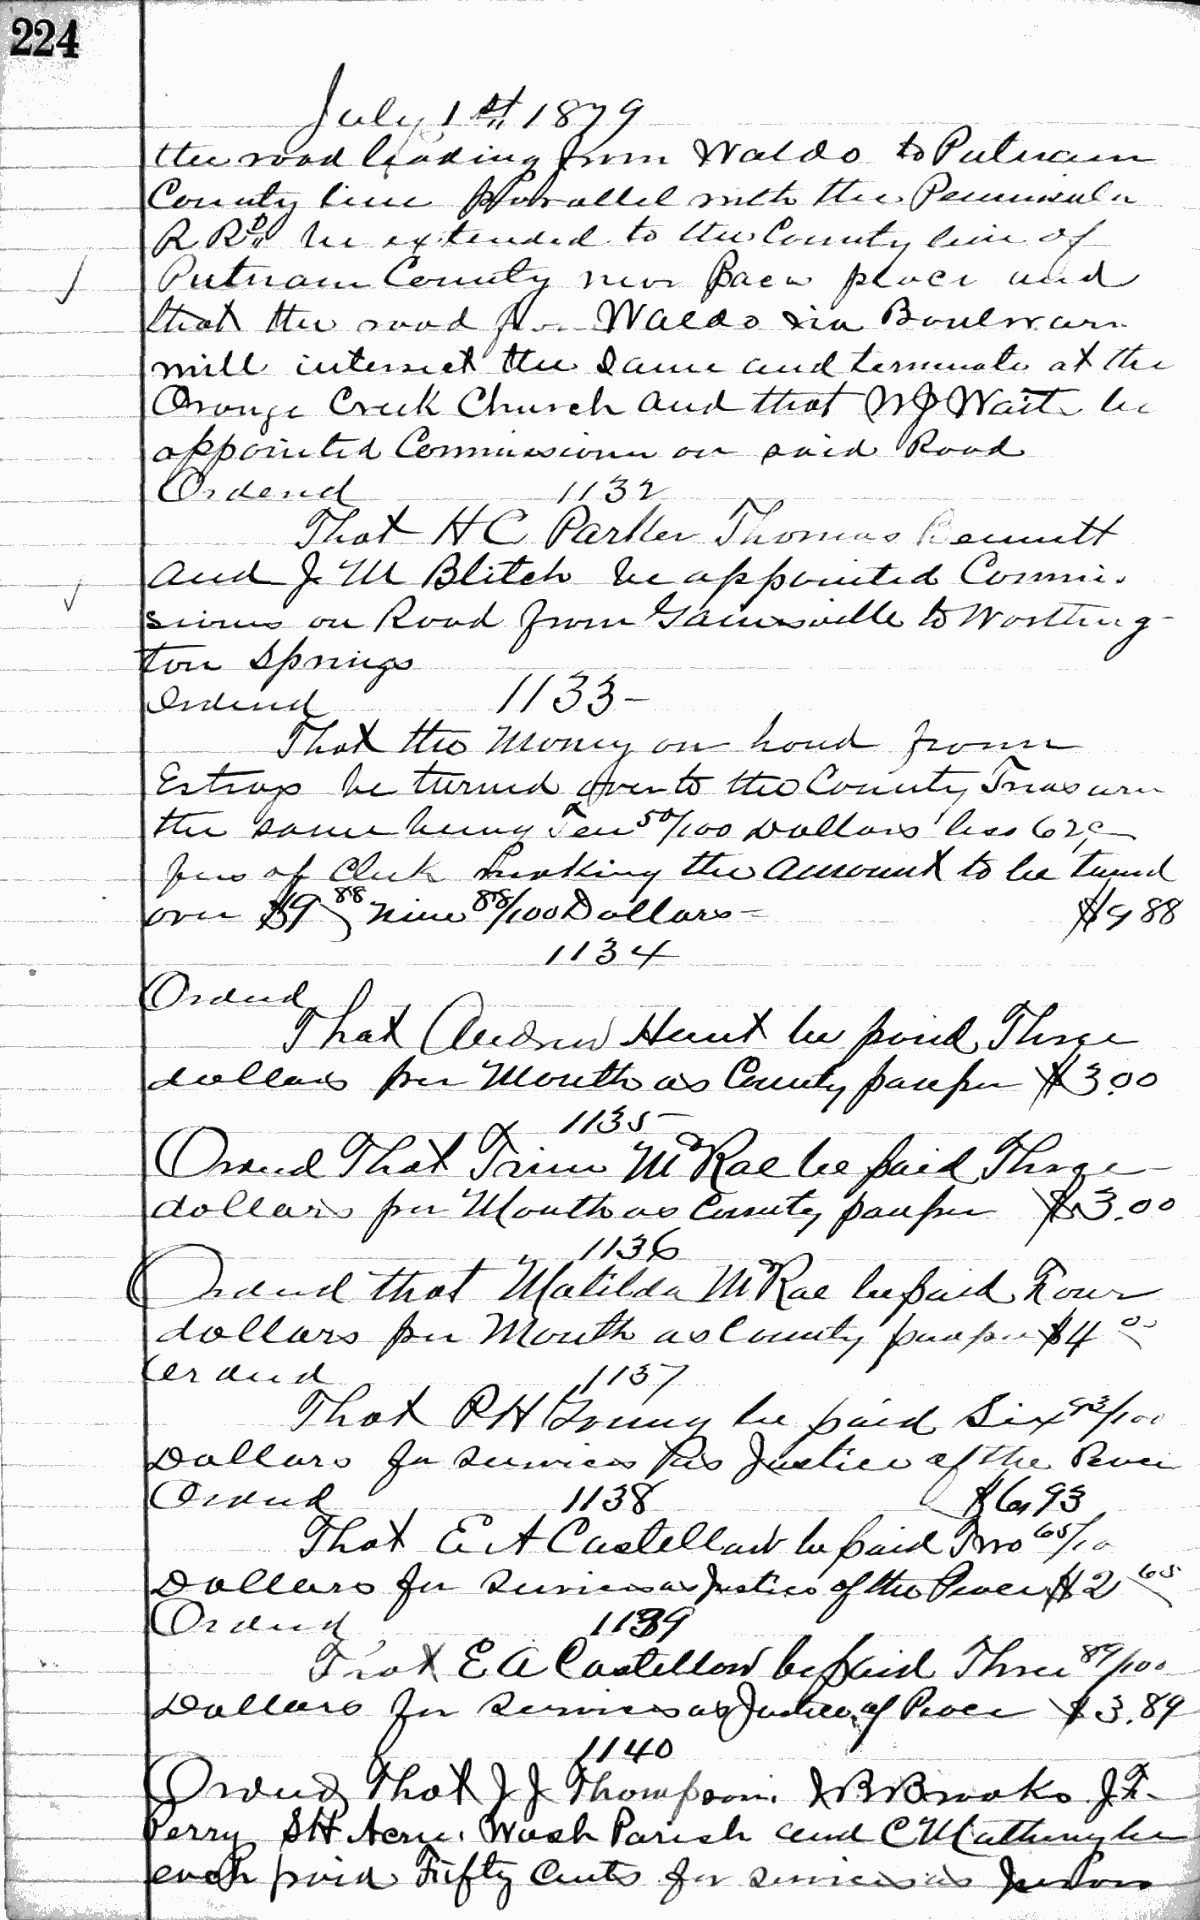 224
July 1st 1879
the road leading from Waldo to Putnam
County line parallel with the Peninsula
R Rd be extended to the County line of
Putnam County near place and
that the road from Waldo via Boulware
mill intersect the Same and terminate at the
Orange Creek Church and that W J Waits be
appointed Commissioner on said Road
Ordered 1132
That H C Parker Thomas Bennett
and J M Blitch be appointed Commis-
sioners on Road from Gainesville to Worthing-
ton Springs
Ordered 1133-
That the Money on hand from
Estrays be turned over to the County Treasurer
the same being Ten 50/100 Dollars less 62c
fees of Clerk making the amount to be turned
over $9 88 Nine 88/100 Dollars- $9 88
1134
Ordered
That Andrew Hunt be paid Three
dollars per Month as County pauper $3.00
1135-
Ordered That McRae be paid Three
dollars per Month as County pauper $3.00
1136
Ordered that Matilda McRae be paid Four
dollars per Month as County pauper $4 00
Ordered 1137
That P H Young be paid Six 93/100
Dollars for services as Justice of the Peace
Ordered 1138 $6,93
That E A Castellow be paid Two 65/10
Dollars for services as Justice of the Peace $2 65
Ordered 1139
That E A Castellow be paid Three 89/100
Dollars for services as Justice of Peace $3.89
1140
Ordered That J J Thompson. J B Brooks J F-
Perry S H Wash Parish and C Matheny be
each paid Fifty Cents for services as Jurors